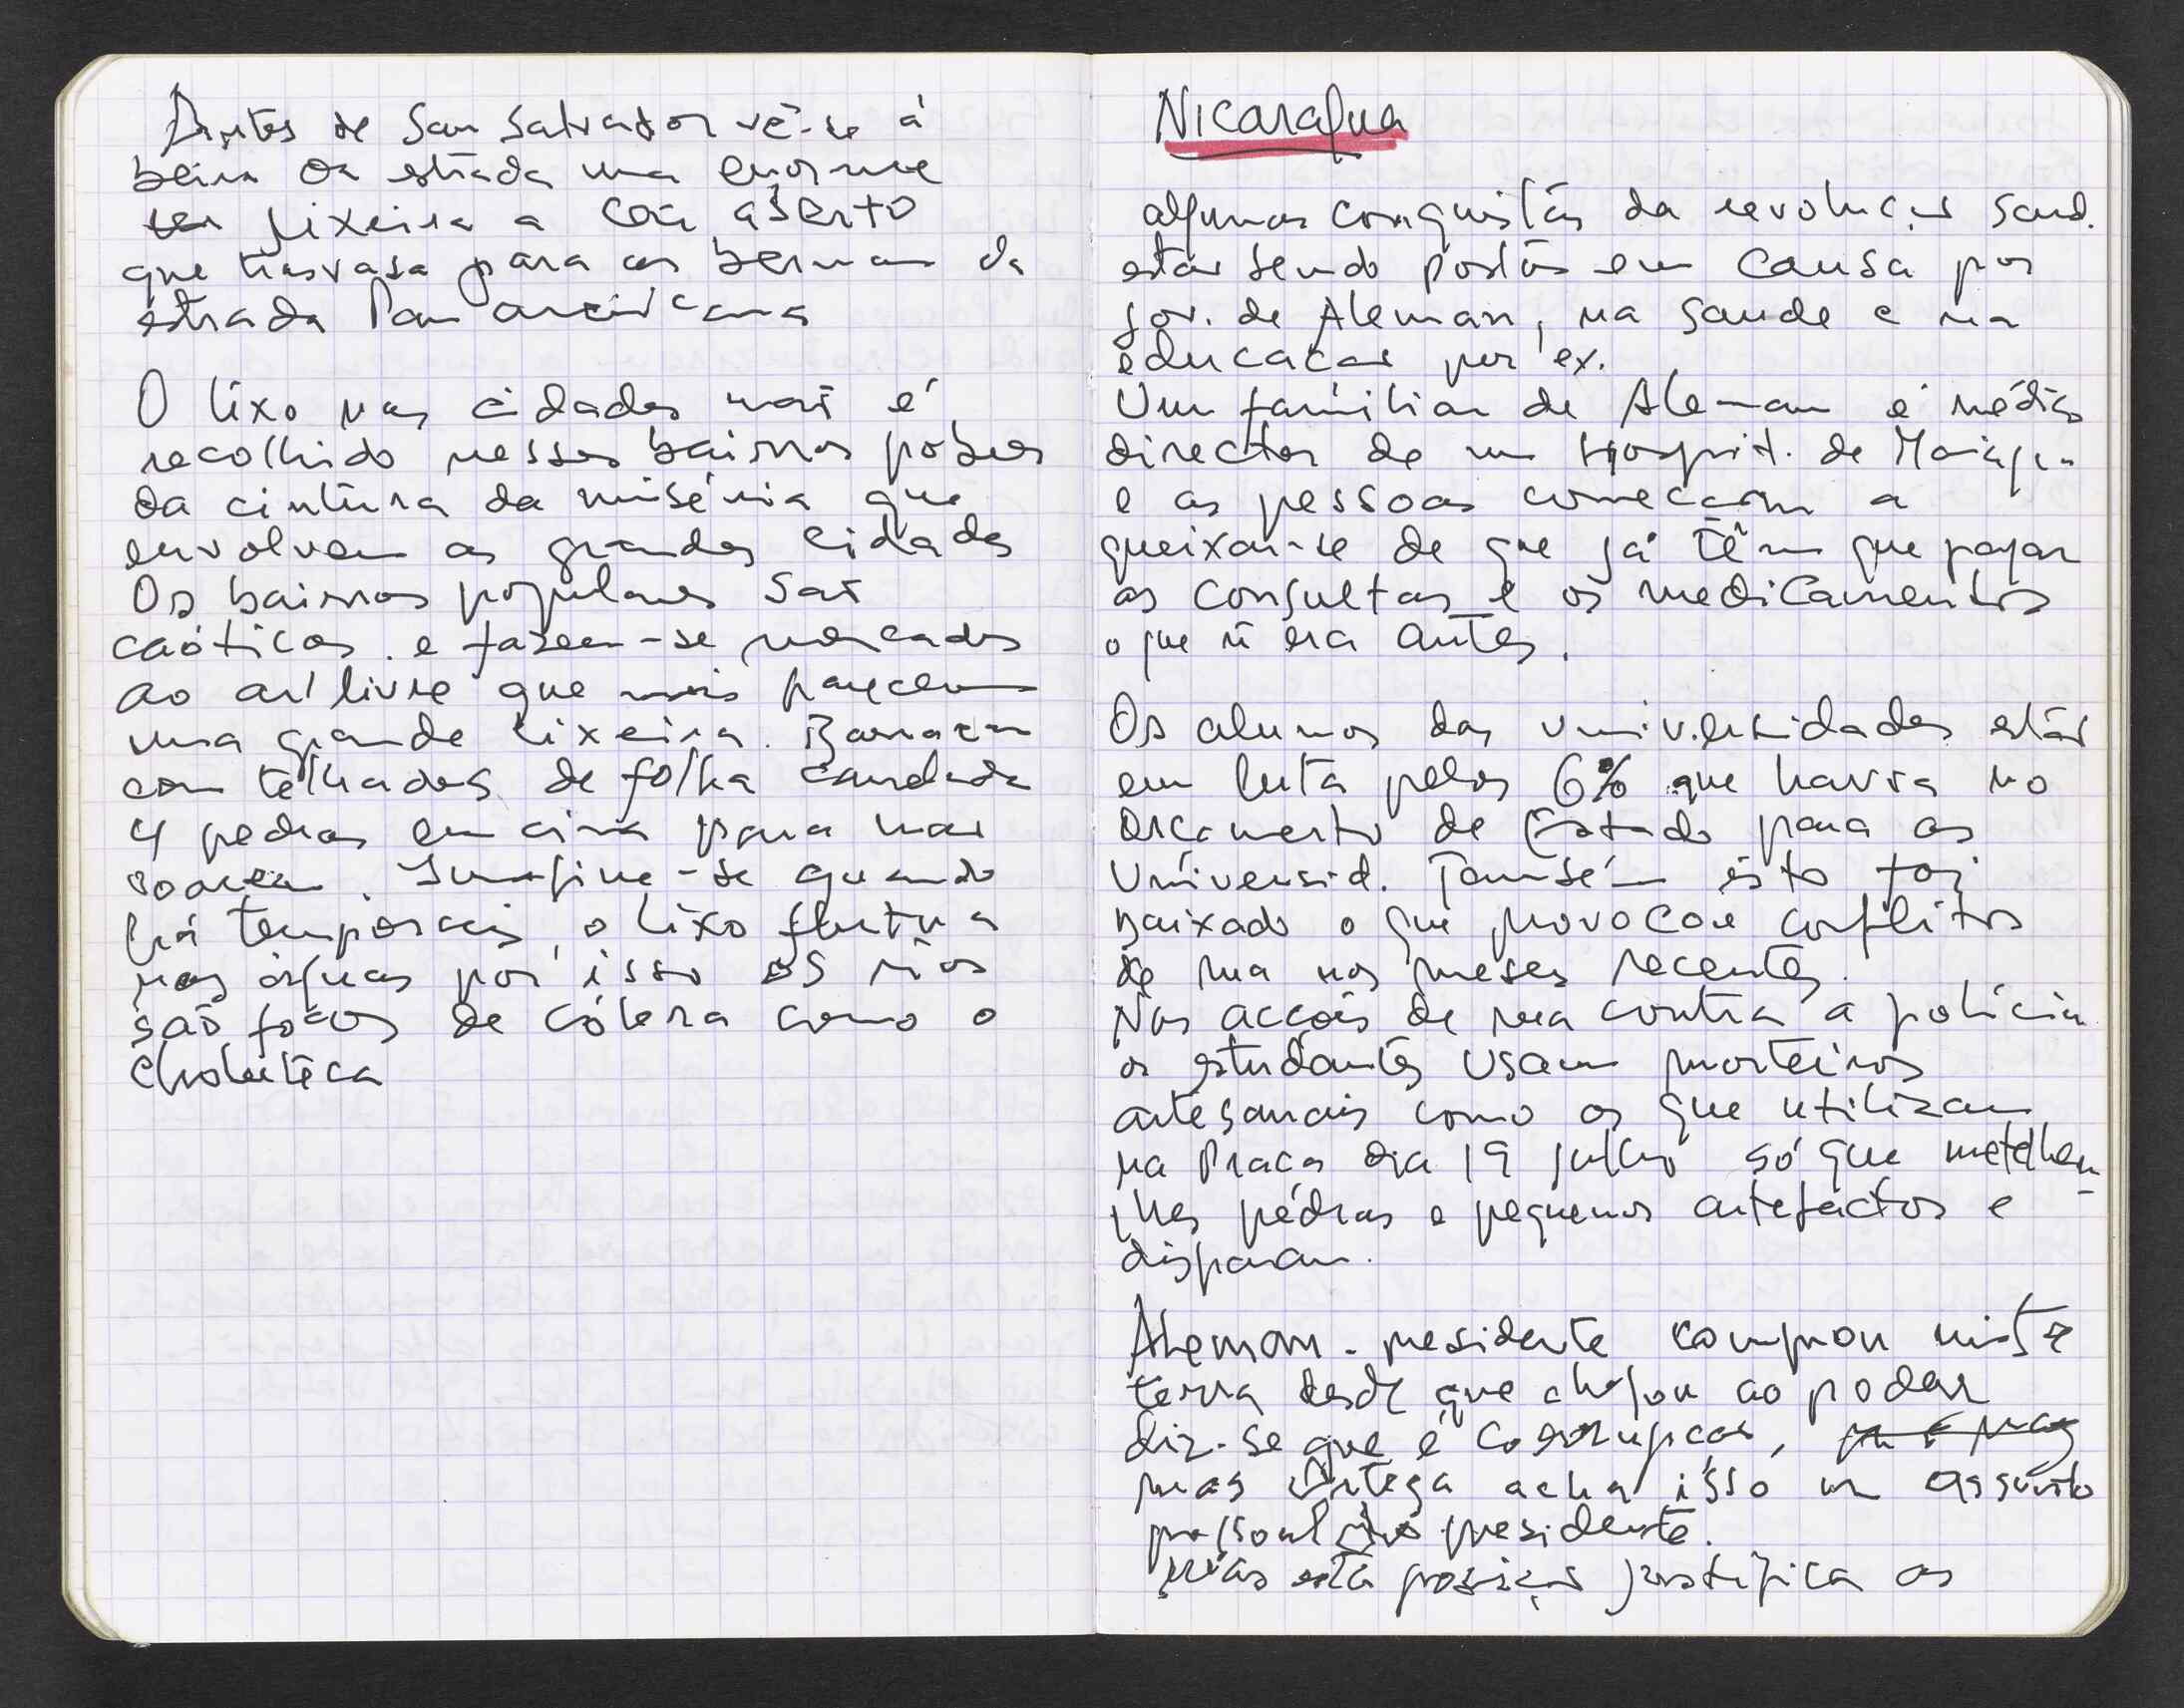 Antes de San Salvador vê-se à
beira da estrada uma enorme
lixeira a céu aberto
que trasvasa para as bermas da
estrada Pan americana
O lixo nas cidades não é
recolhido nesses bairros pobres
da cintura da miséria que
envolvem as grandes cidades
Os bairros populares são
caóticos e fazem-se mercados
ao ar livre que mais parecem
uma grande lixeira. Barracas
com telhados de folha canelada
4 pedras em cima para não
voarem. Imagine-se quando
há temporais, o lixo flutua
nas águas por isso os rios
são focos de cólera como o
Choluteca
Nicaragua
algumas conquistas da revolução sand.
estão sendo postas em causa por
gov. de Aleman, na saude e na
educação por ex.
Um familiar de Aleman é médico
director de um Hospit. de
e as pessoas começam a
queixar-se de que já têm que pagar
as consultas e os medicamentos
o que ñ era antes.
Os alunos das universidades estão
em luta pelos 6% que havia no
Orçamento de Estado para as
Universid. Também isto foi
baixado o que provocou conflitos
de rua nos meses recentes.
Nas acções de rua contra a polícia
os estudantes usam morteiros
artesanais como os que utilizam
na Praça dia 19 julho só que metem-
lhes pedras e pequenos artefactos e
disparam.
Aleman - presidente comprou mista
terra desde que chegou ao poder
diz-se que é corrupção,
mas Ortega acha isso um assunto
pessoal do presidente.
esta posição justifica as